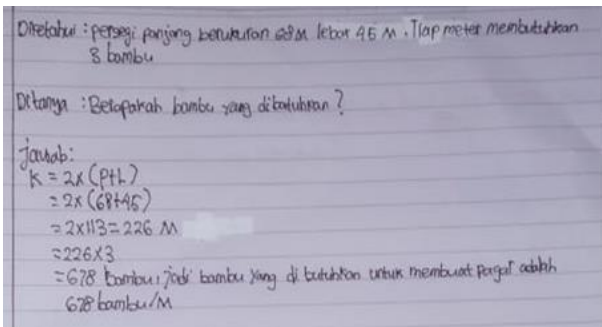 Diketahui : persegi panjang berukuran 68 M lebar 45 M. Tiap meter membutuhkan
3 bambu
Ditanya : Berapakah bambu yang dibutuhkan ?
jawab:
K = 2x (P+L)
= 2x (68+45)
= 2x113 = 226 M
= 226x3
= 678 bambu, jadi bambu yang di butuhkan untuk membuat pagar adalah
678 bambu/M